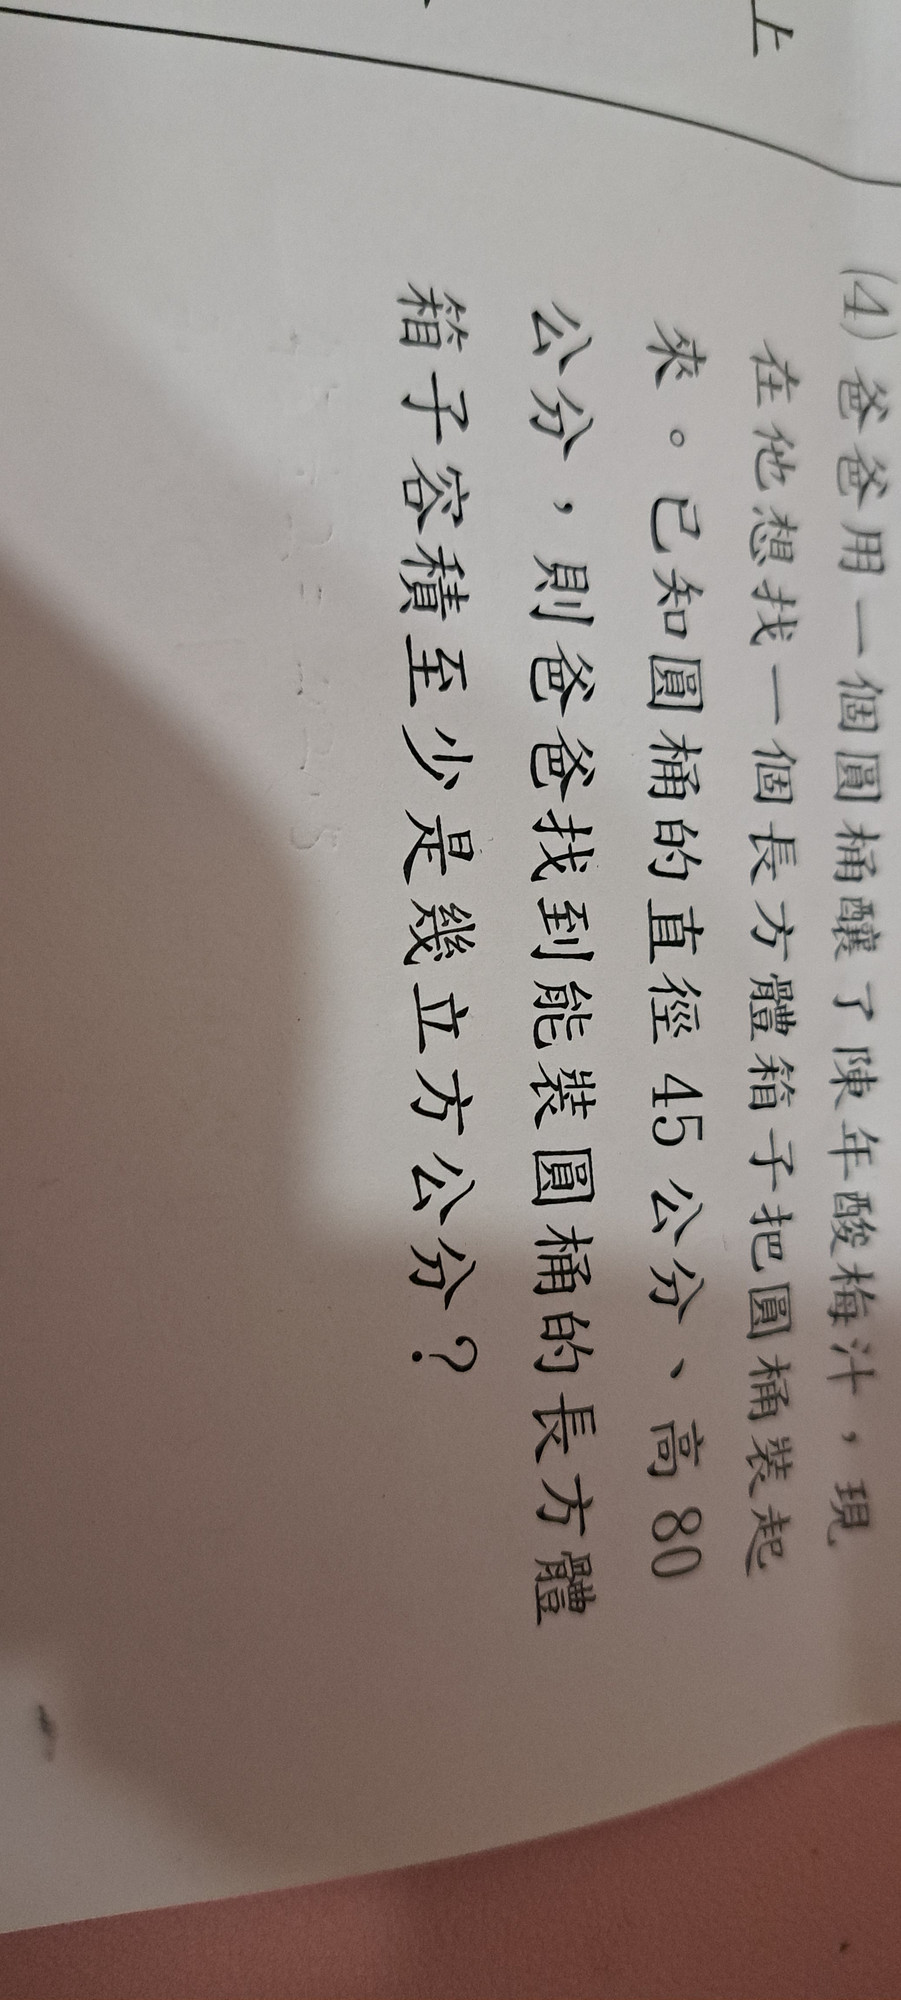 上
(4) 爸爸用一個圓桶釀了陳年酸梅汁，現
在他想找一個長方體箱子把圓桶裝起
來。已知圓桶的直徑45公分、高80
公分，則爸爸找到能裝圓桶的長方體
箱子容積至少是幾立方公分？